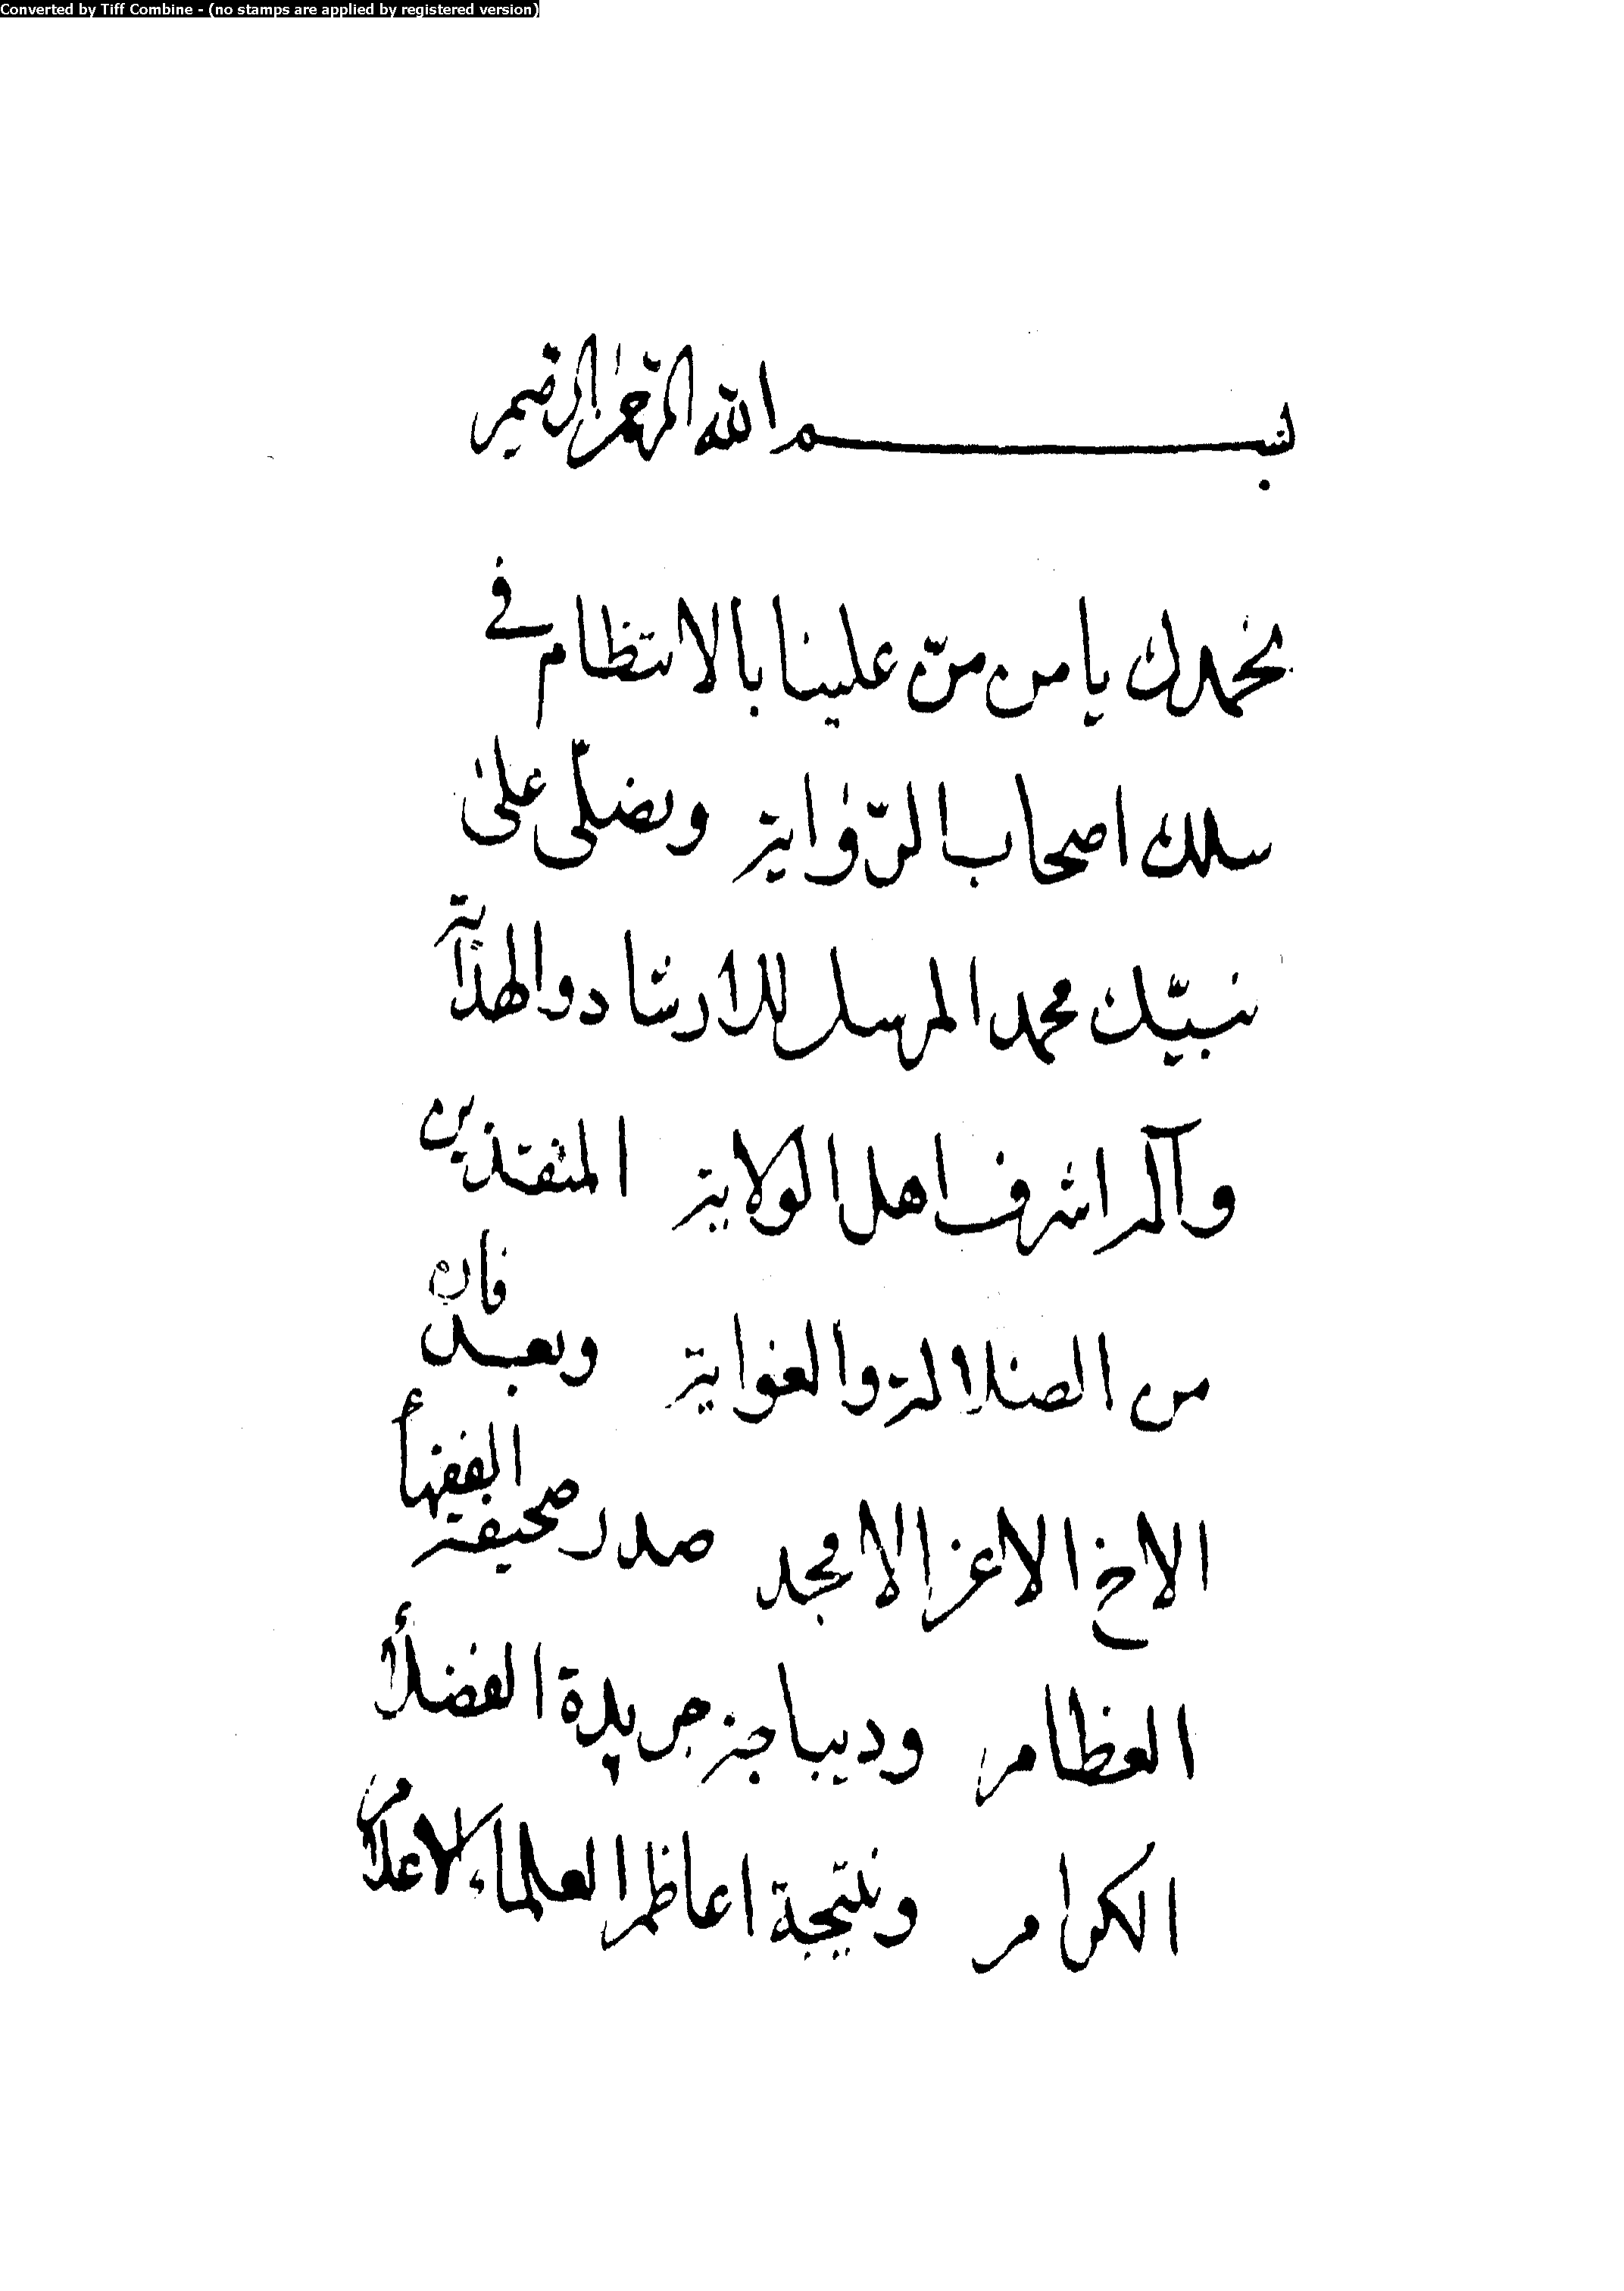 Converted by Tiff Combine - (no stamps are applied by registered version)
بسم الله الرحمن الرحيم
نحمدك يا من منّ علينا بالانتظام في
سلك اصحاب الرّواية ونصلّي على
نبيّك محمد المرسل للارشاد والهداية
وآله اشرف اهل الولاية المنقذين
من الضلالة والغواية وبعد فان
الاخ الاعز الامجد صدر صحيفة الفقهاء
العظام وديباجة جريدة الفضلاء
الكرام ونتيجة اعاظم العلماء الاعلام